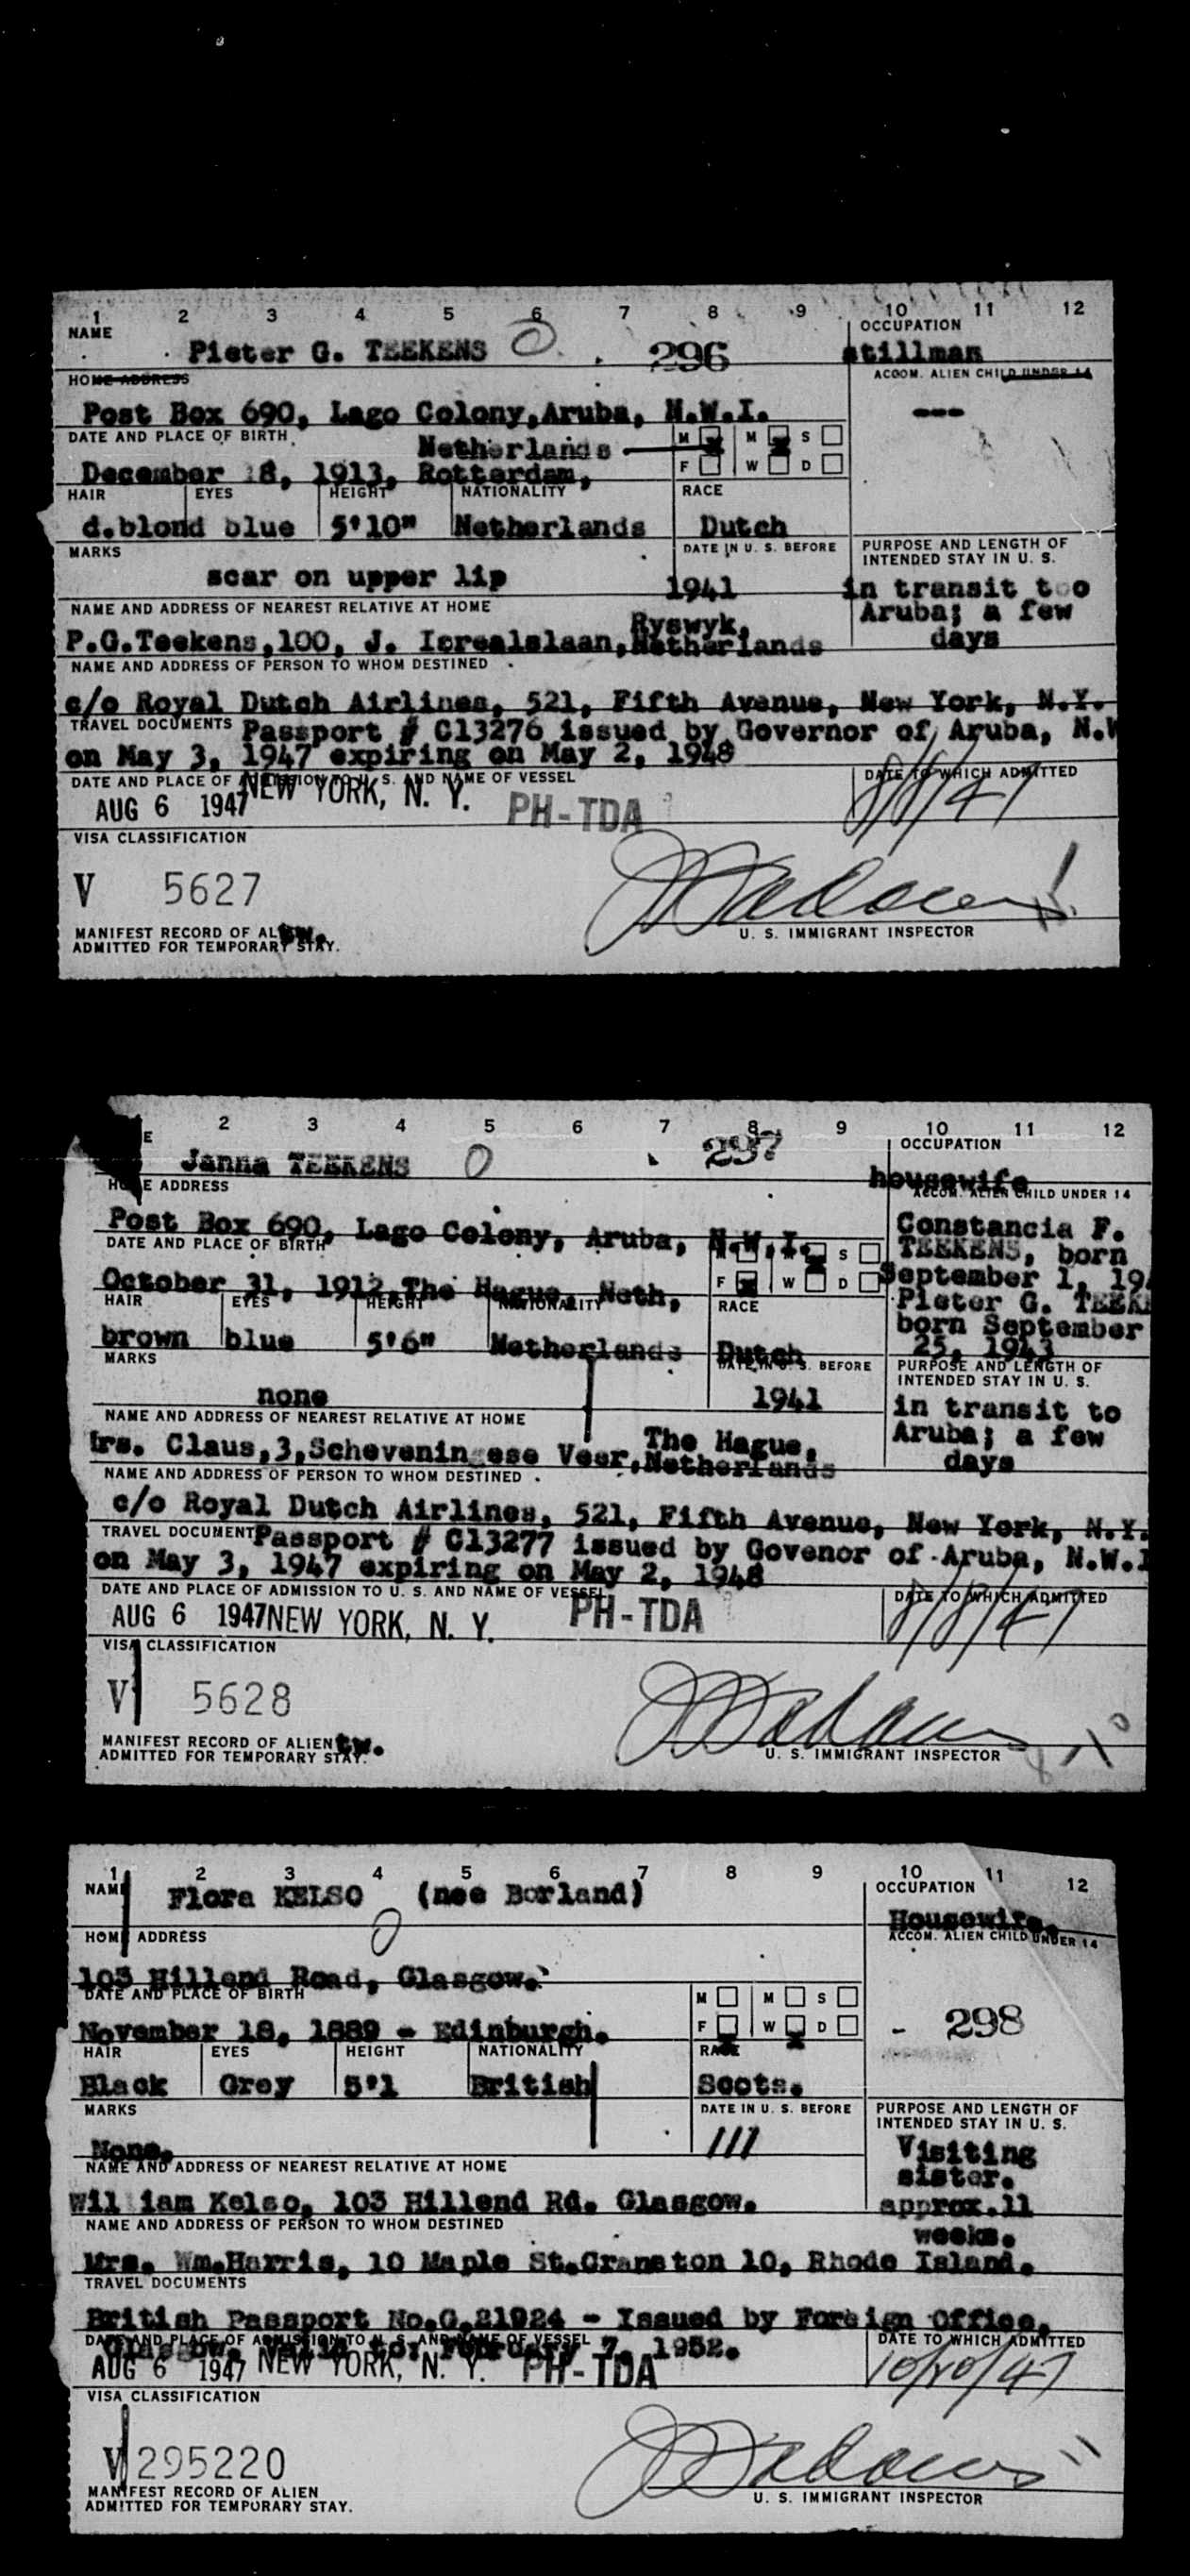 1 2 3 4 5 6 7 8 9 10 11 12
NAME OCCUPATION
Pieter G. TEEKENS 296 stillman
HOME ADDRESS ACCOM. ALIEN CHILD UNDER 14
Post Box 690, Lago Colony,Aruba, N.W.I. ---
DATE AND PLACE OF BIRTH Netherlands M M S
December 18, 1913, Rotterdam, F W D
HAIR EYES HEIGHT NATIONALITY RACE
d.blond blue 5'10" Netherlands Dutch
MARKS DATE IN U. S. BEFORE PURPOSE AND LENGTH OF
INTENDED STAY IN U. S.
scar on upper lip 1941 in transit too
NAME AND ADDRESS OF NEAREST RELATIVE AT HOME Aruba; a few
Ryswyk, days
P.G.Teekens,100, J. Netherlands
NAME AND ADDRESS OF PERSON TO WHOM DESTINED
c/o Royal Dutch Airlines, 521, Fifth Avenue, New York, N.Y.
TRAVEL DOCUMENTS Passport # C13276 issued by Governor of Aruba, N.W
on May 3, 1947 expiring on May 2, 1948
DATE AND PLACE OF ADMISSION TO U. S. AND NAME OF VESSEL DATE TO WHICH ADMITTED
AUG 6 1947 NEW YORK, N. Y. PH-TDA 8/8/47
VISA CLASSIFICATION
V 5627
MANIFEST RECORD OF ALIEN U. S. IMMIGRANT INSPECTOR
ADMITTED FOR TEMPORARY STAY.
2 3 4 5 6 7 8 9 10 11 12
E OCCUPATION
Janna TEEKENS 297 housewife
HOME ADDRESS ACCOM. ALIEN CHILD UNDER 14
Post Box 690, Lago Colony, Aruba, N.W.I. Constancia F.
DATE AND PLACE OF BIRTH S TEEKENS, born
October 31, 1912,The Hague, Neth, F W D September 1, 19
HAIR EYES HEIGHT NATIONALITY RACE Pieter G. TEEKE
brown blue 5'6" Netherlands Dutch born September
25, 1943
MARKS DATE IN U. S. BEFORE PURPOSE AND LENGTH OF
INTENDED STAY IN U. S.
none 1941 in transit to
NAME AND ADDRESS OF NEAREST RELATIVE AT HOME Aruba; a few
The Hague, days
Mrs. Claus,3,Scheveningese Veer,Netherlands
NAME AND ADDRESS OF PERSON TO WHOM DESTINED
c/o Royal Dutch Airlines, 521, Fifth Avenue, New York, N.Y.
TRAVEL DOCUMENT Passport # C13277 issued by Govenor of Aruba, N.W.I
on May 3, 1947 expiring on May 2, 1948
DATE AND PLACE OF ADMISSION TO U. S. AND NAME OF VESSEL DATE TO WHICH ADMITTED
AUG 6 1947 NEW YORK, N. Y. PH-TDA 8/8/47
VISA CLASSIFICATION
V 5628
MANIFEST RECORD OF ALIEN tw. U. S. IMMIGRANT INSPECTOR
ADMITTED FOR TEMPORARY STAY.
1 2 3 4 5 6 7 8 9 10 11 12
NAME OCCUPATION
Flora KELSO (nee Borland) Housewife.
HOME ADDRESS ACCOM. ALIEN CHILD UNDER 14
103 Hillend Road, Glasgow.
DATE AND PLACE OF BIRTH M M S
November 18, 1889 - Edinburgh. F W D - 298
HAIR EYES HEIGHT NATIONALITY RACE
Black Grey 5'1 British Scots.
MARKS DATE IN U. S. BEFORE PURPOSE AND LENGTH OF
INTENDED STAY IN U. S.
None. Visiting
NAME AND ADDRESS OF NEAREST RELATIVE AT HOME sister.
William Kelso, 103 Hillend Rd. Glasgow. approx.11
NAME AND ADDRESS OF PERSON TO WHOM DESTINED weeks.
Mrs. Wm.Harris, 10 Maple St.Cranston 10, Rhode Island.
TRAVEL DOCUMENTS
British Passport No.C.21924 - Issued by Foreign Office,
Glasgow. Valid to: February 7, 1952.
DATE AND PLACE OF ADMISSION TO U. S. AND NAME OF VESSEL DATE TO WHICH ADMITTED
AUG 6 1947 NEW YORK, N. Y. PH-TDA 10/20/47
VISA CLASSIFICATION
V 295220
MANIFEST RECORD OF ALIEN U. S. IMMIGRANT INSPECTOR
ADMITTED FOR TEMPORARY STAY.